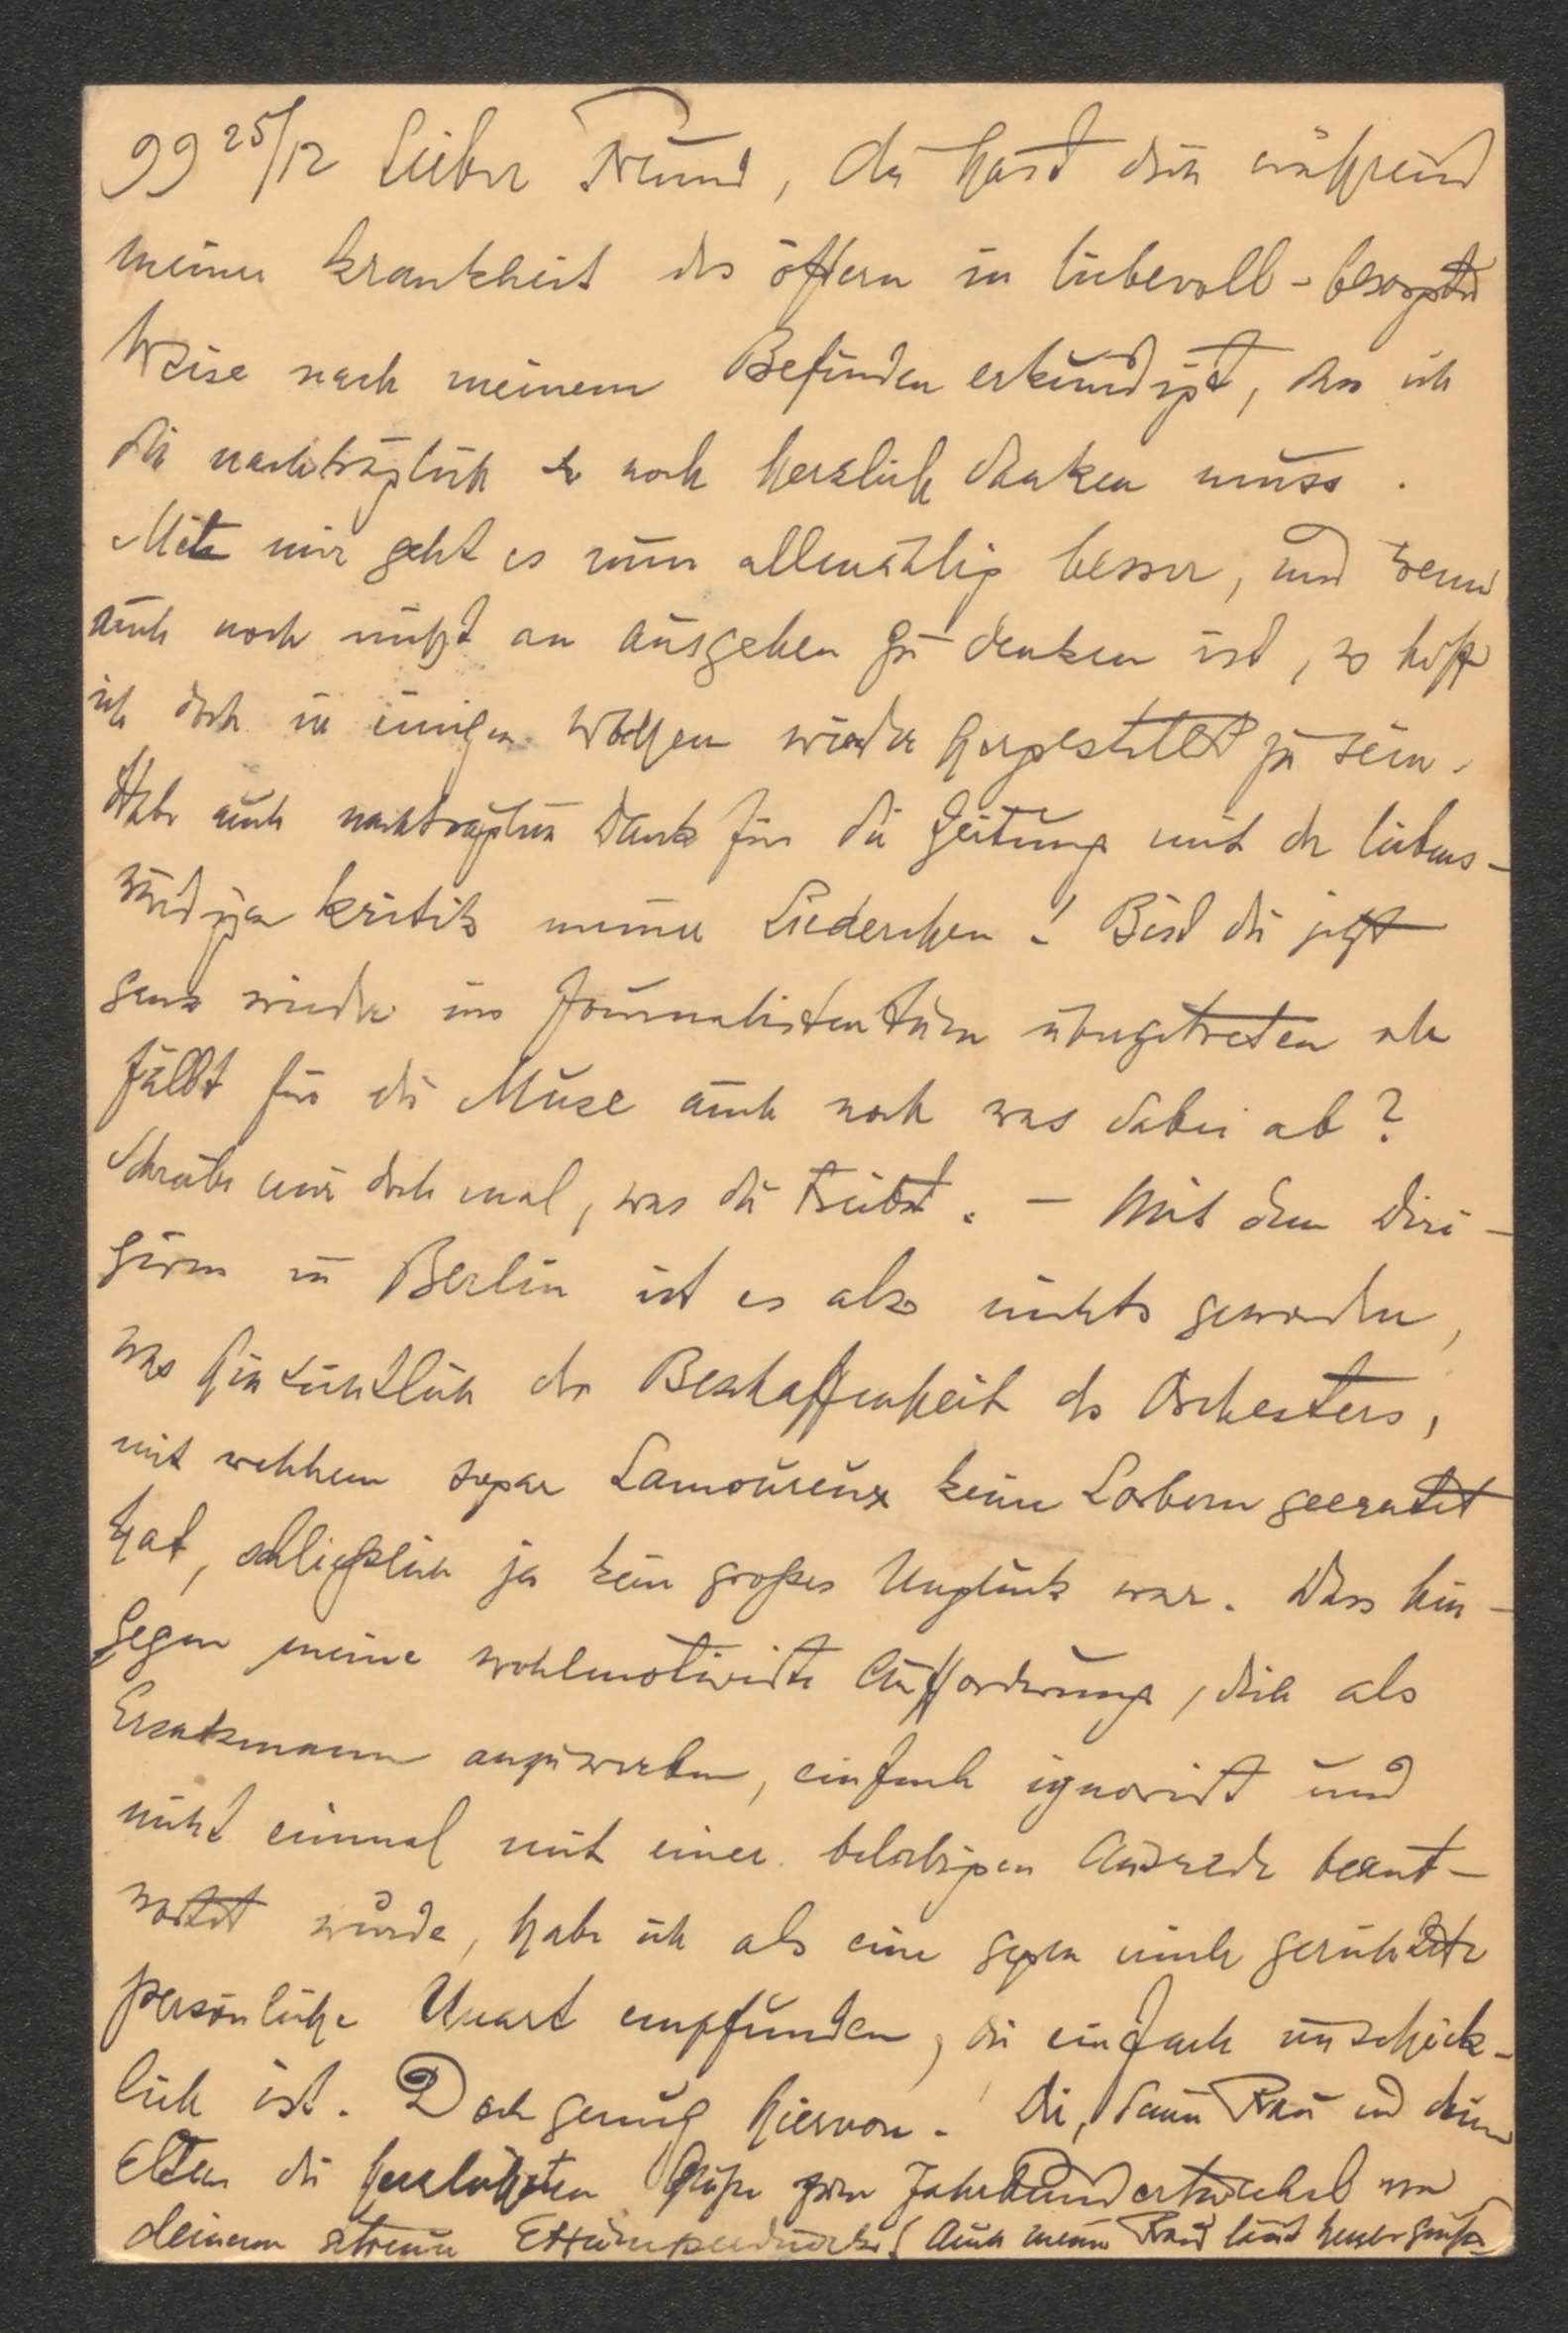 99 25/12 Lieber Freund, du hast dich während
meiner Krankheit des öftern in liebevoll-besorgter
Weise nach meinem Befinden erkundigt, dass ich
dir nachträglich noch herzlich danken muss.
Mit mir geht es nun allmählig besser, und wenn
auch noch nicht an ausgehen zu denken ist, so hoffe
ich doch in einigen Wochen wieder hergestellt zu sein.
Habe auch nachträglich Dank für die Zeitung mit der liebens-
würdigen Kritik meiner Liederchen! Bist du jetzt
ganz wieder ins Journalistentum übergetreten oder
fällt für die Muse auch noch was dabei ab?
Schreibe mir doch mal, was du treibst. – Mit dem Diri-
giren in Berlin ist es also nichts geworden,
was hinsichtlich der Beschaffenheit des Orchesters,
mit welchem sogar Lamoureux keine Lorbern geerntet
hat, schließlich ja kein großes Unglück war. Dass hin-
gegen meine wohlmotivirte Aufforderung, dich als
Ersatzmann anzuwerben, einfach ignorirt und
nicht einmal mit einer beliebigen Ausrede beant-
wortet wurde, habe ich als eine gegen mich gerichtete
persönliche Unart empfunden, die einfach unschick-
lich ist. Doch genug hiervon. Dir, deiner Frau und deinen
Eltern die herzlichsten Grüße zum Jahrhundertwechsel von
deinem getreuen EHumperdinck. Auch meine Frau lässt herzlich grüßen